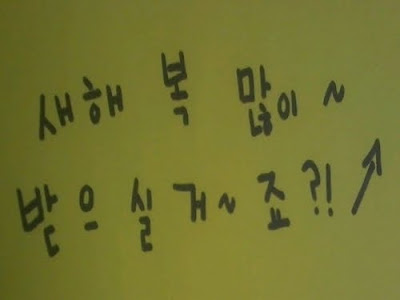 새해 복 많이~
받으실 거~죠?!↗